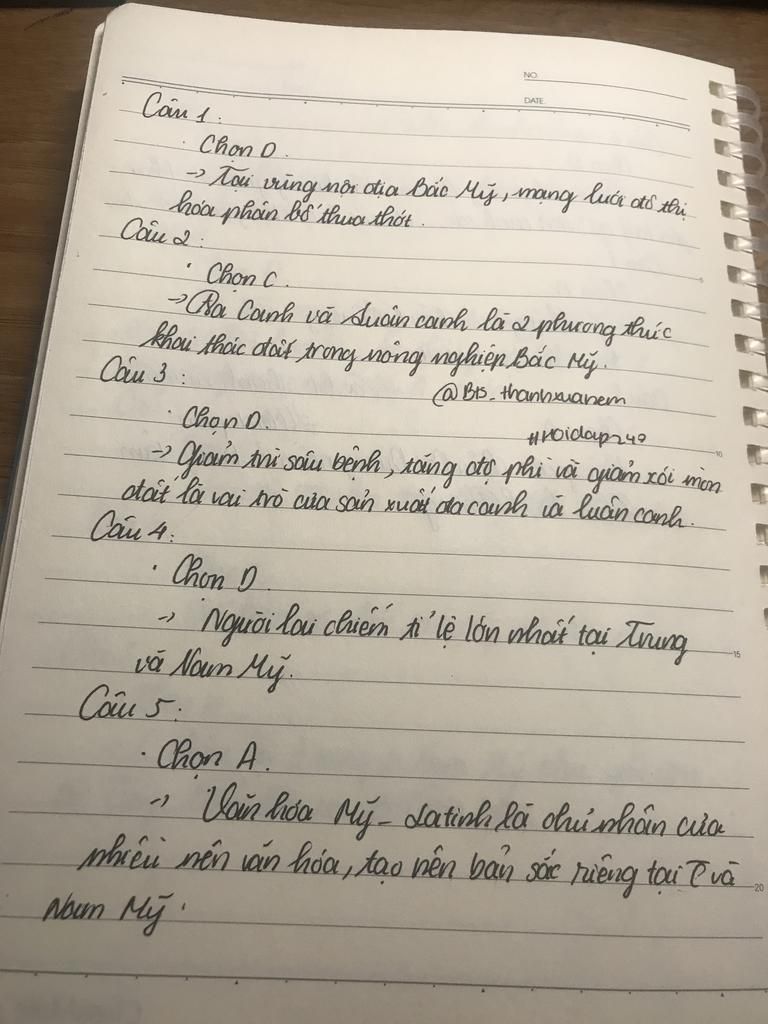 NO.
DATE.
Câu 1:
· Chọn D.
-> Tại vùng nội địa Bắc Mỹ, mạng lưới đô thị
hóa phân bố thưa thớt.
Câu 2:
· Chọn C.
-> Đa Canh và Luân canh là 2 phương thức
khai thác đất trong nông nghiệp Bắc Mỹ.
Câu 3:
@Bts_thanhxuanem
· Chọn D.
#Hoidap249
-> Giảm trì sâu bệnh, tăng độ phì và giảm xói mòn
đất là vai trò của sản xuất đa canh và luân canh.
Câu 4:
· Chọn D
-> Người lai chiếm tỉ lệ lớn nhất tại Trung
và Nam Mỹ.
Câu 5:
· Chọn A.
-> Văn hóa Mỹ - Latinh là chủ nhân của
nhiều nền văn hóa, tạo nên bản sắc riêng tại T và
Nam Mỹ.
5
10
15
20